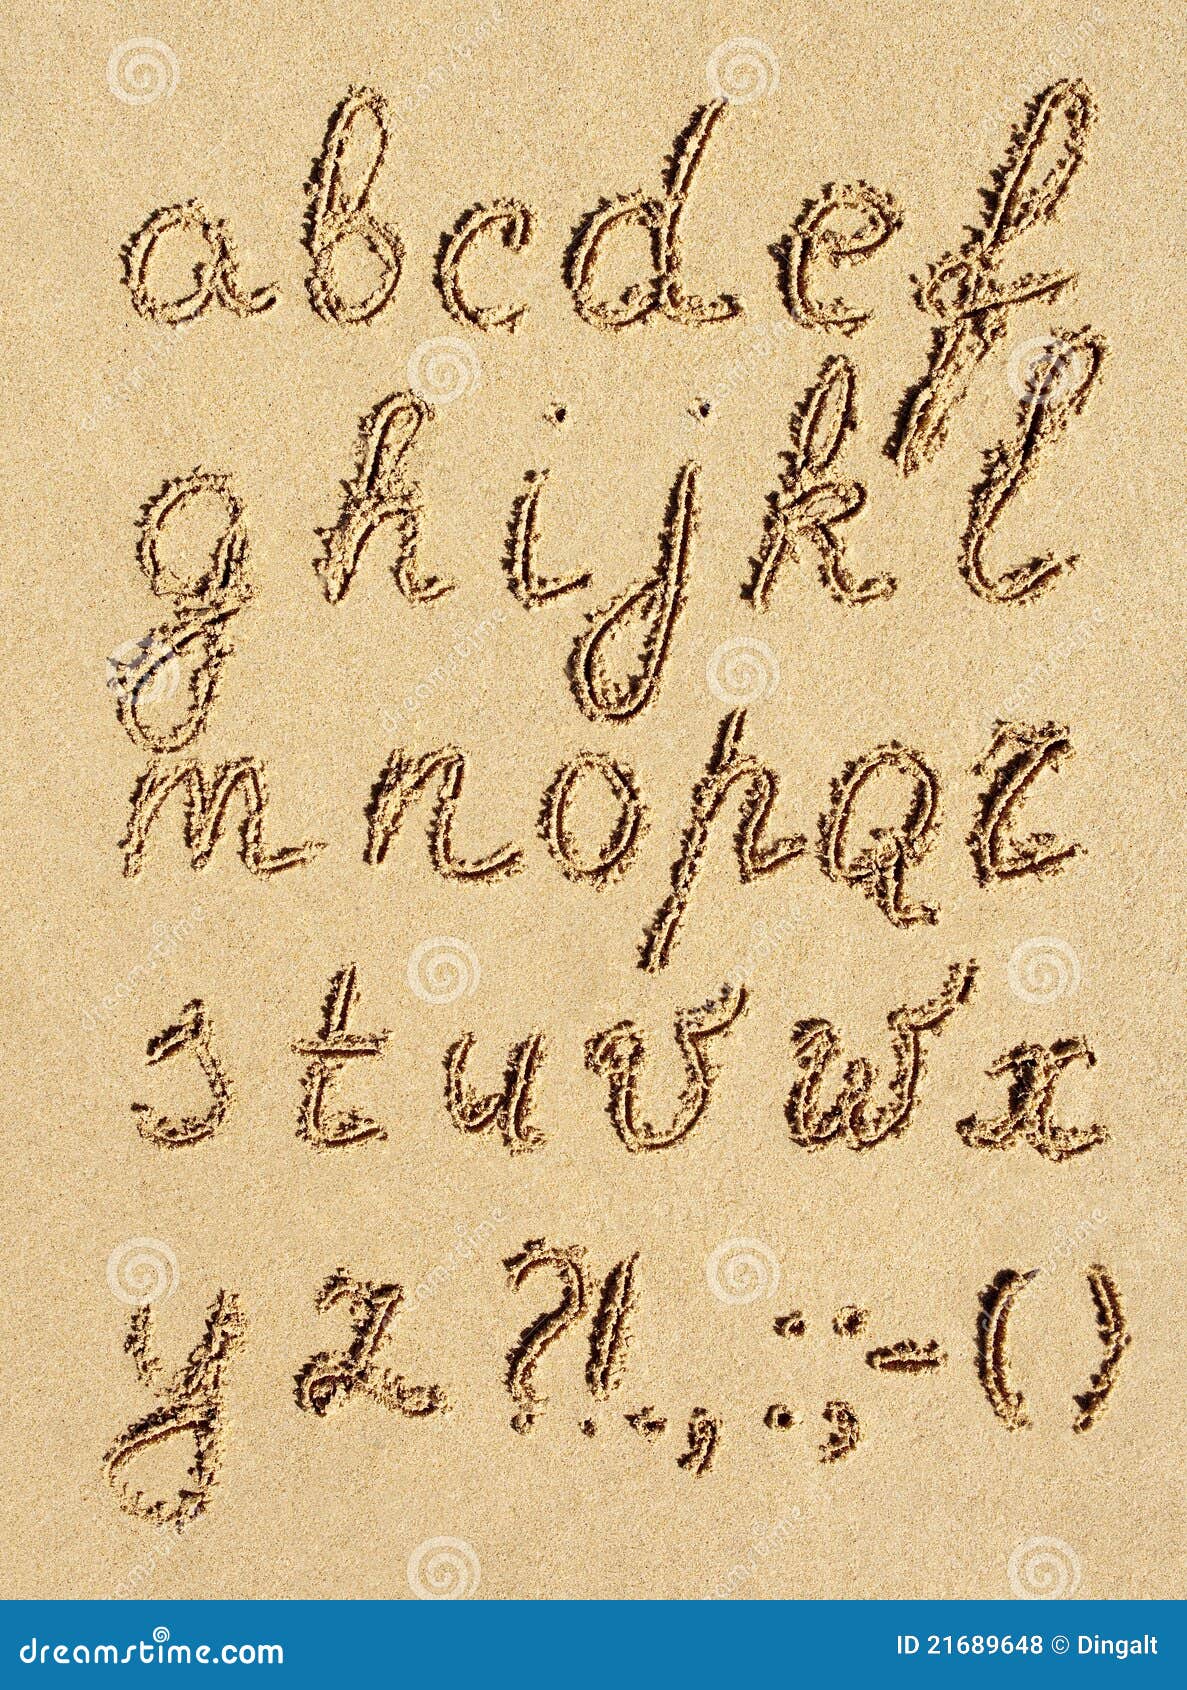 a b c d e f
g h i j k l
m n o p q r
s t u v w x
y z ? ! . , : ; - ( )
dreamstime.com
ID 21689648 © Dingalt